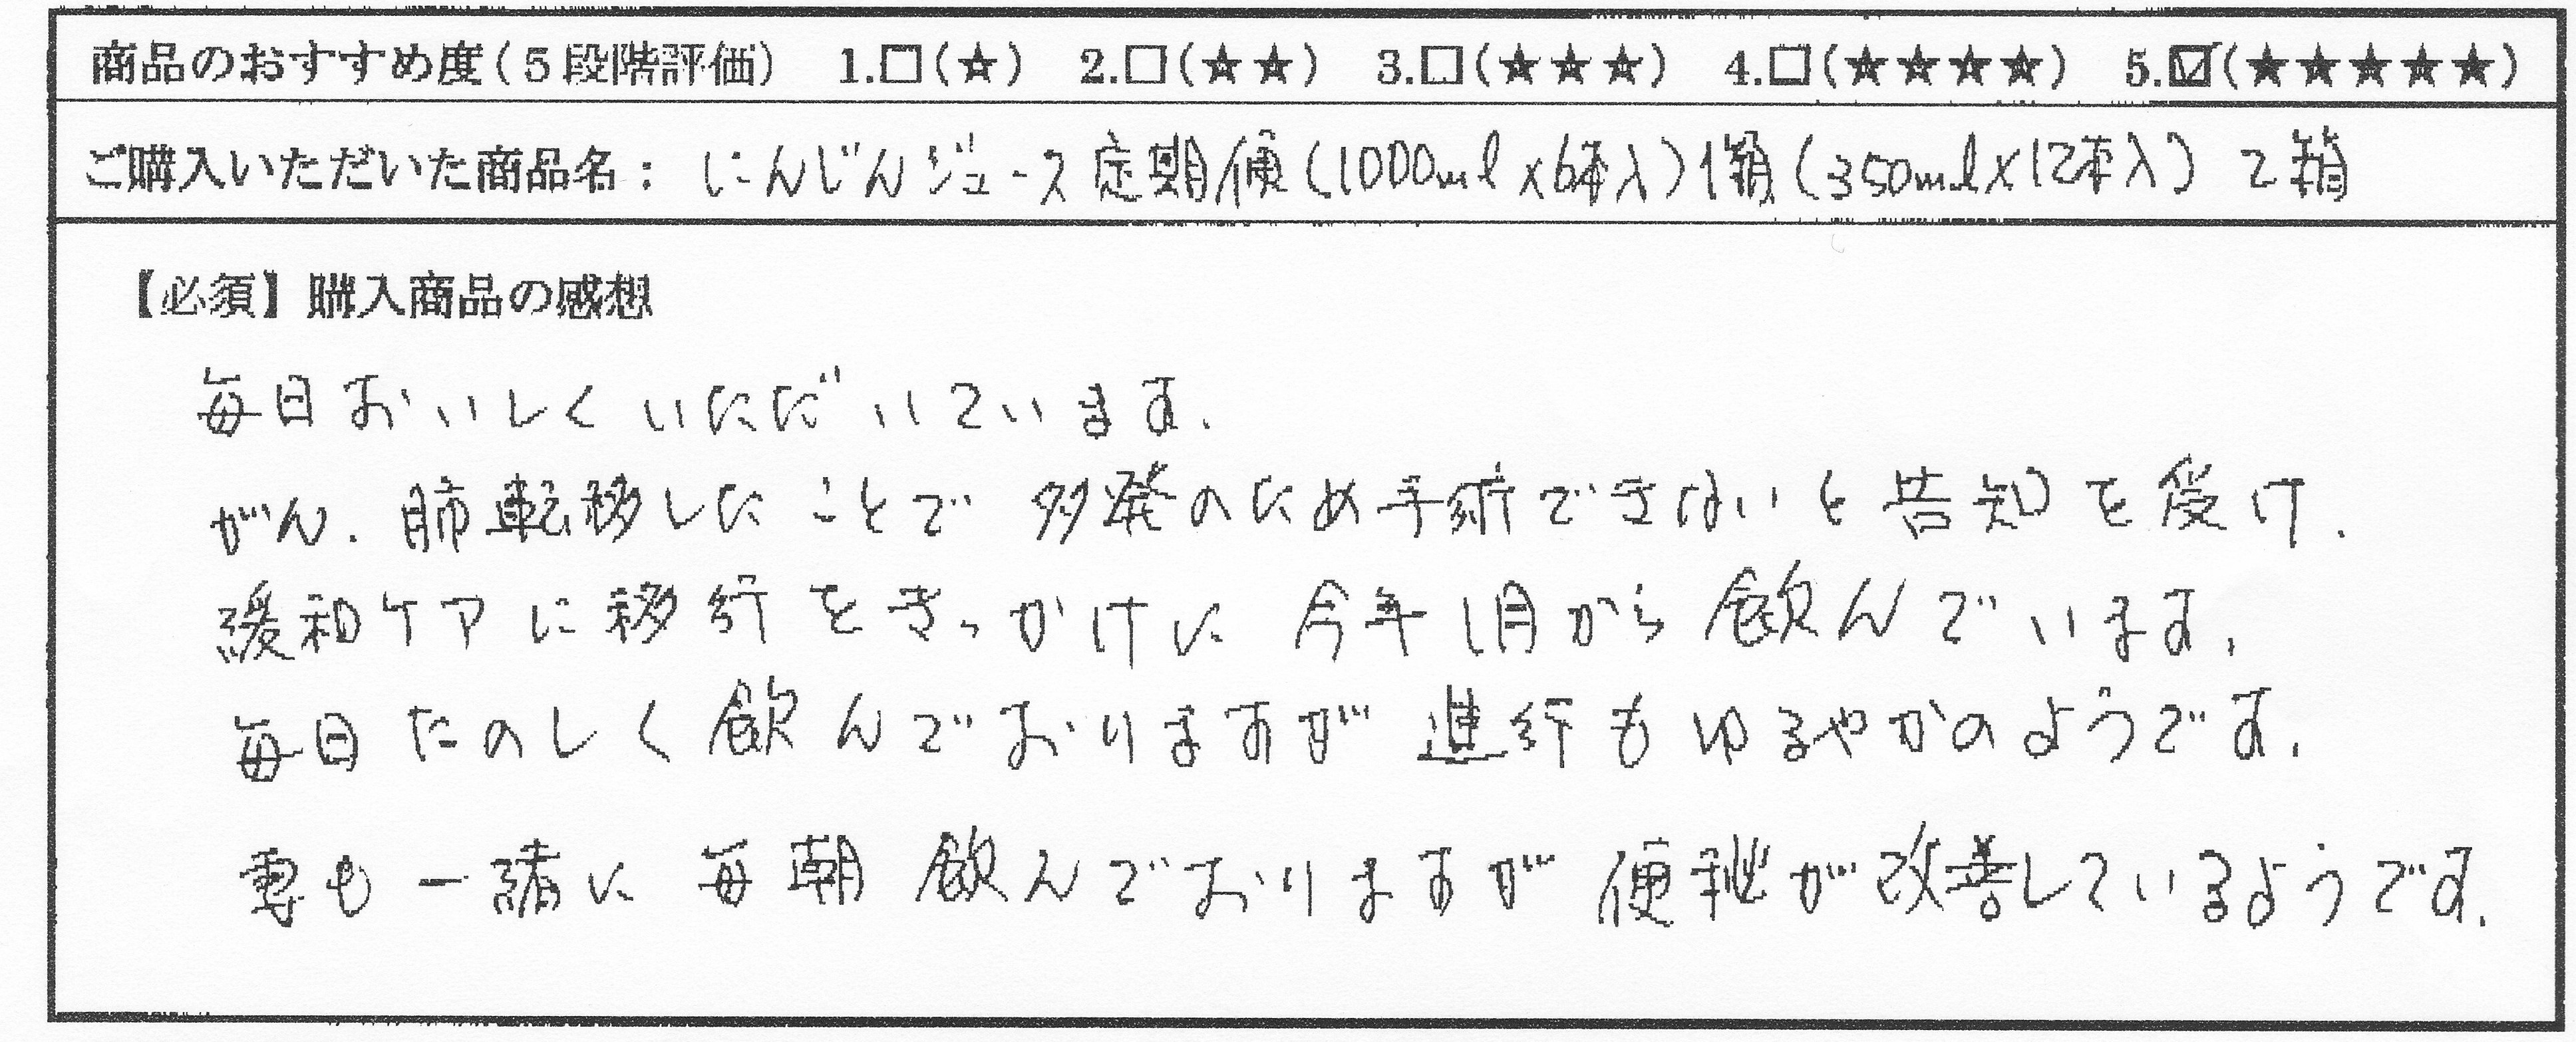 商品のおすすめ度(5段階評価) 1.□(★) 2.□(★★) 3.□(★★★) 4.□(★★★★) 5.☑(★★★★★)
ご購入いただいた商品名: にんじんジュース定期便(1000ml×6本入)1箱(350ml×12本入)2箱
【必須】購入商品の感想
毎日おいしくいただいています.
がん.肺転移したことで多発のため手術できないと告知を受け.
緩和ケアに移行をきっかけに今年1月から飲んでいます.
毎日たのしく飲んでおりますが進行もゆるやかのようです.
妻も一緒に毎朝飲んでおりますが便秘が改善しているようです.